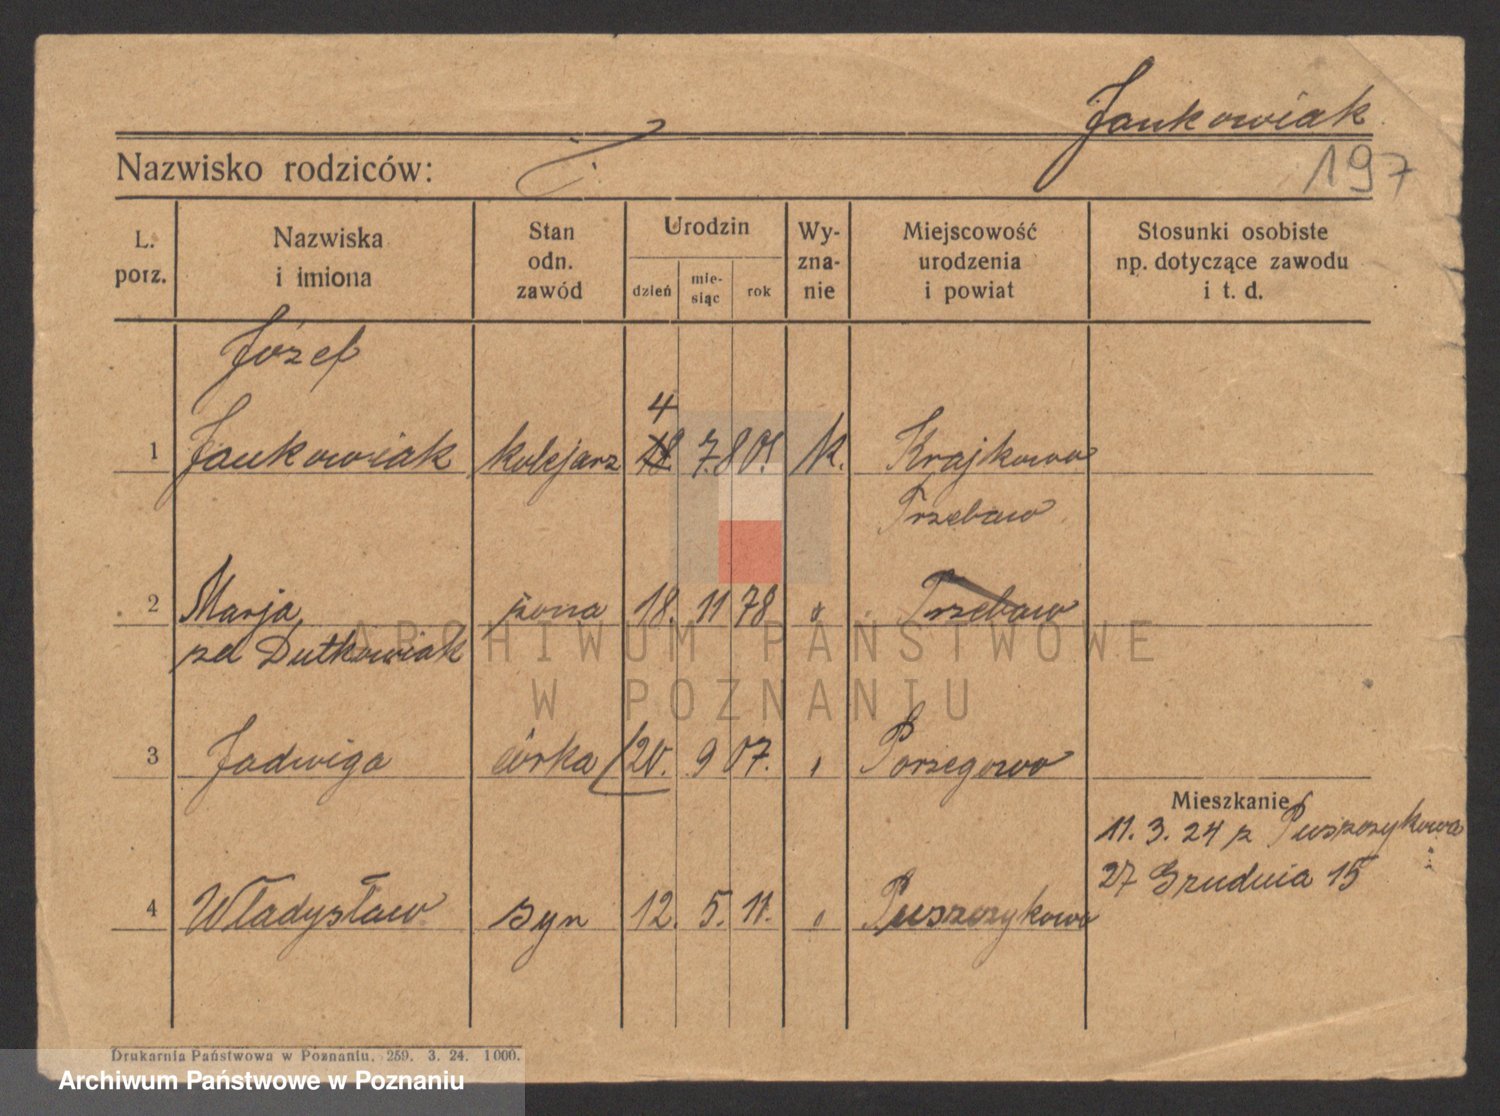 Jankowiak
Nazwisko rodziców:
197
L. porz.
Nazwiska i imiona
Stan odn. zawód
Urodzin
dzień
mie- siąc
rok
Wy- zna- nie
Miejscowość urodzenia i powiat
Stosunki osobiste np. dotyczące zawodu i t. d.
Józef
4
1 Jankowiak kolejarz 18. 7. 8 01. k. Krajkowo
Trzebaw
2 Marja żona 18. 11 78 " Trzebaw
zd Dutkowiak
3 Jadwiga córka 20. 9 07. " Porzegowo
Mieszkanie
11. 3. 24 z Puszczykowa
27 Grudnia 15
4 Władysław syn 12. 5. 11. " Puszczykowo
ARCHIWUM PAŃSTWOWE
W POZNANIU
Drukarnia Państwowa w Poznaniu. 259. 3. 24. 1000.
Archiwum Państwowe w Poznaniu